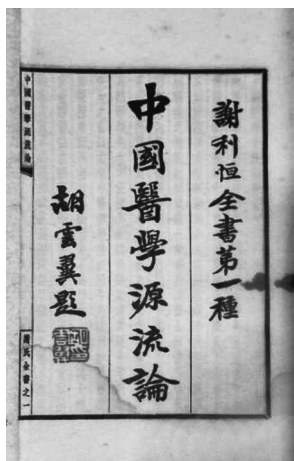 謝利恒全書第一種
中國醫學源流論
胡雲翼題
中國醫學源流論
謝氏全書之一